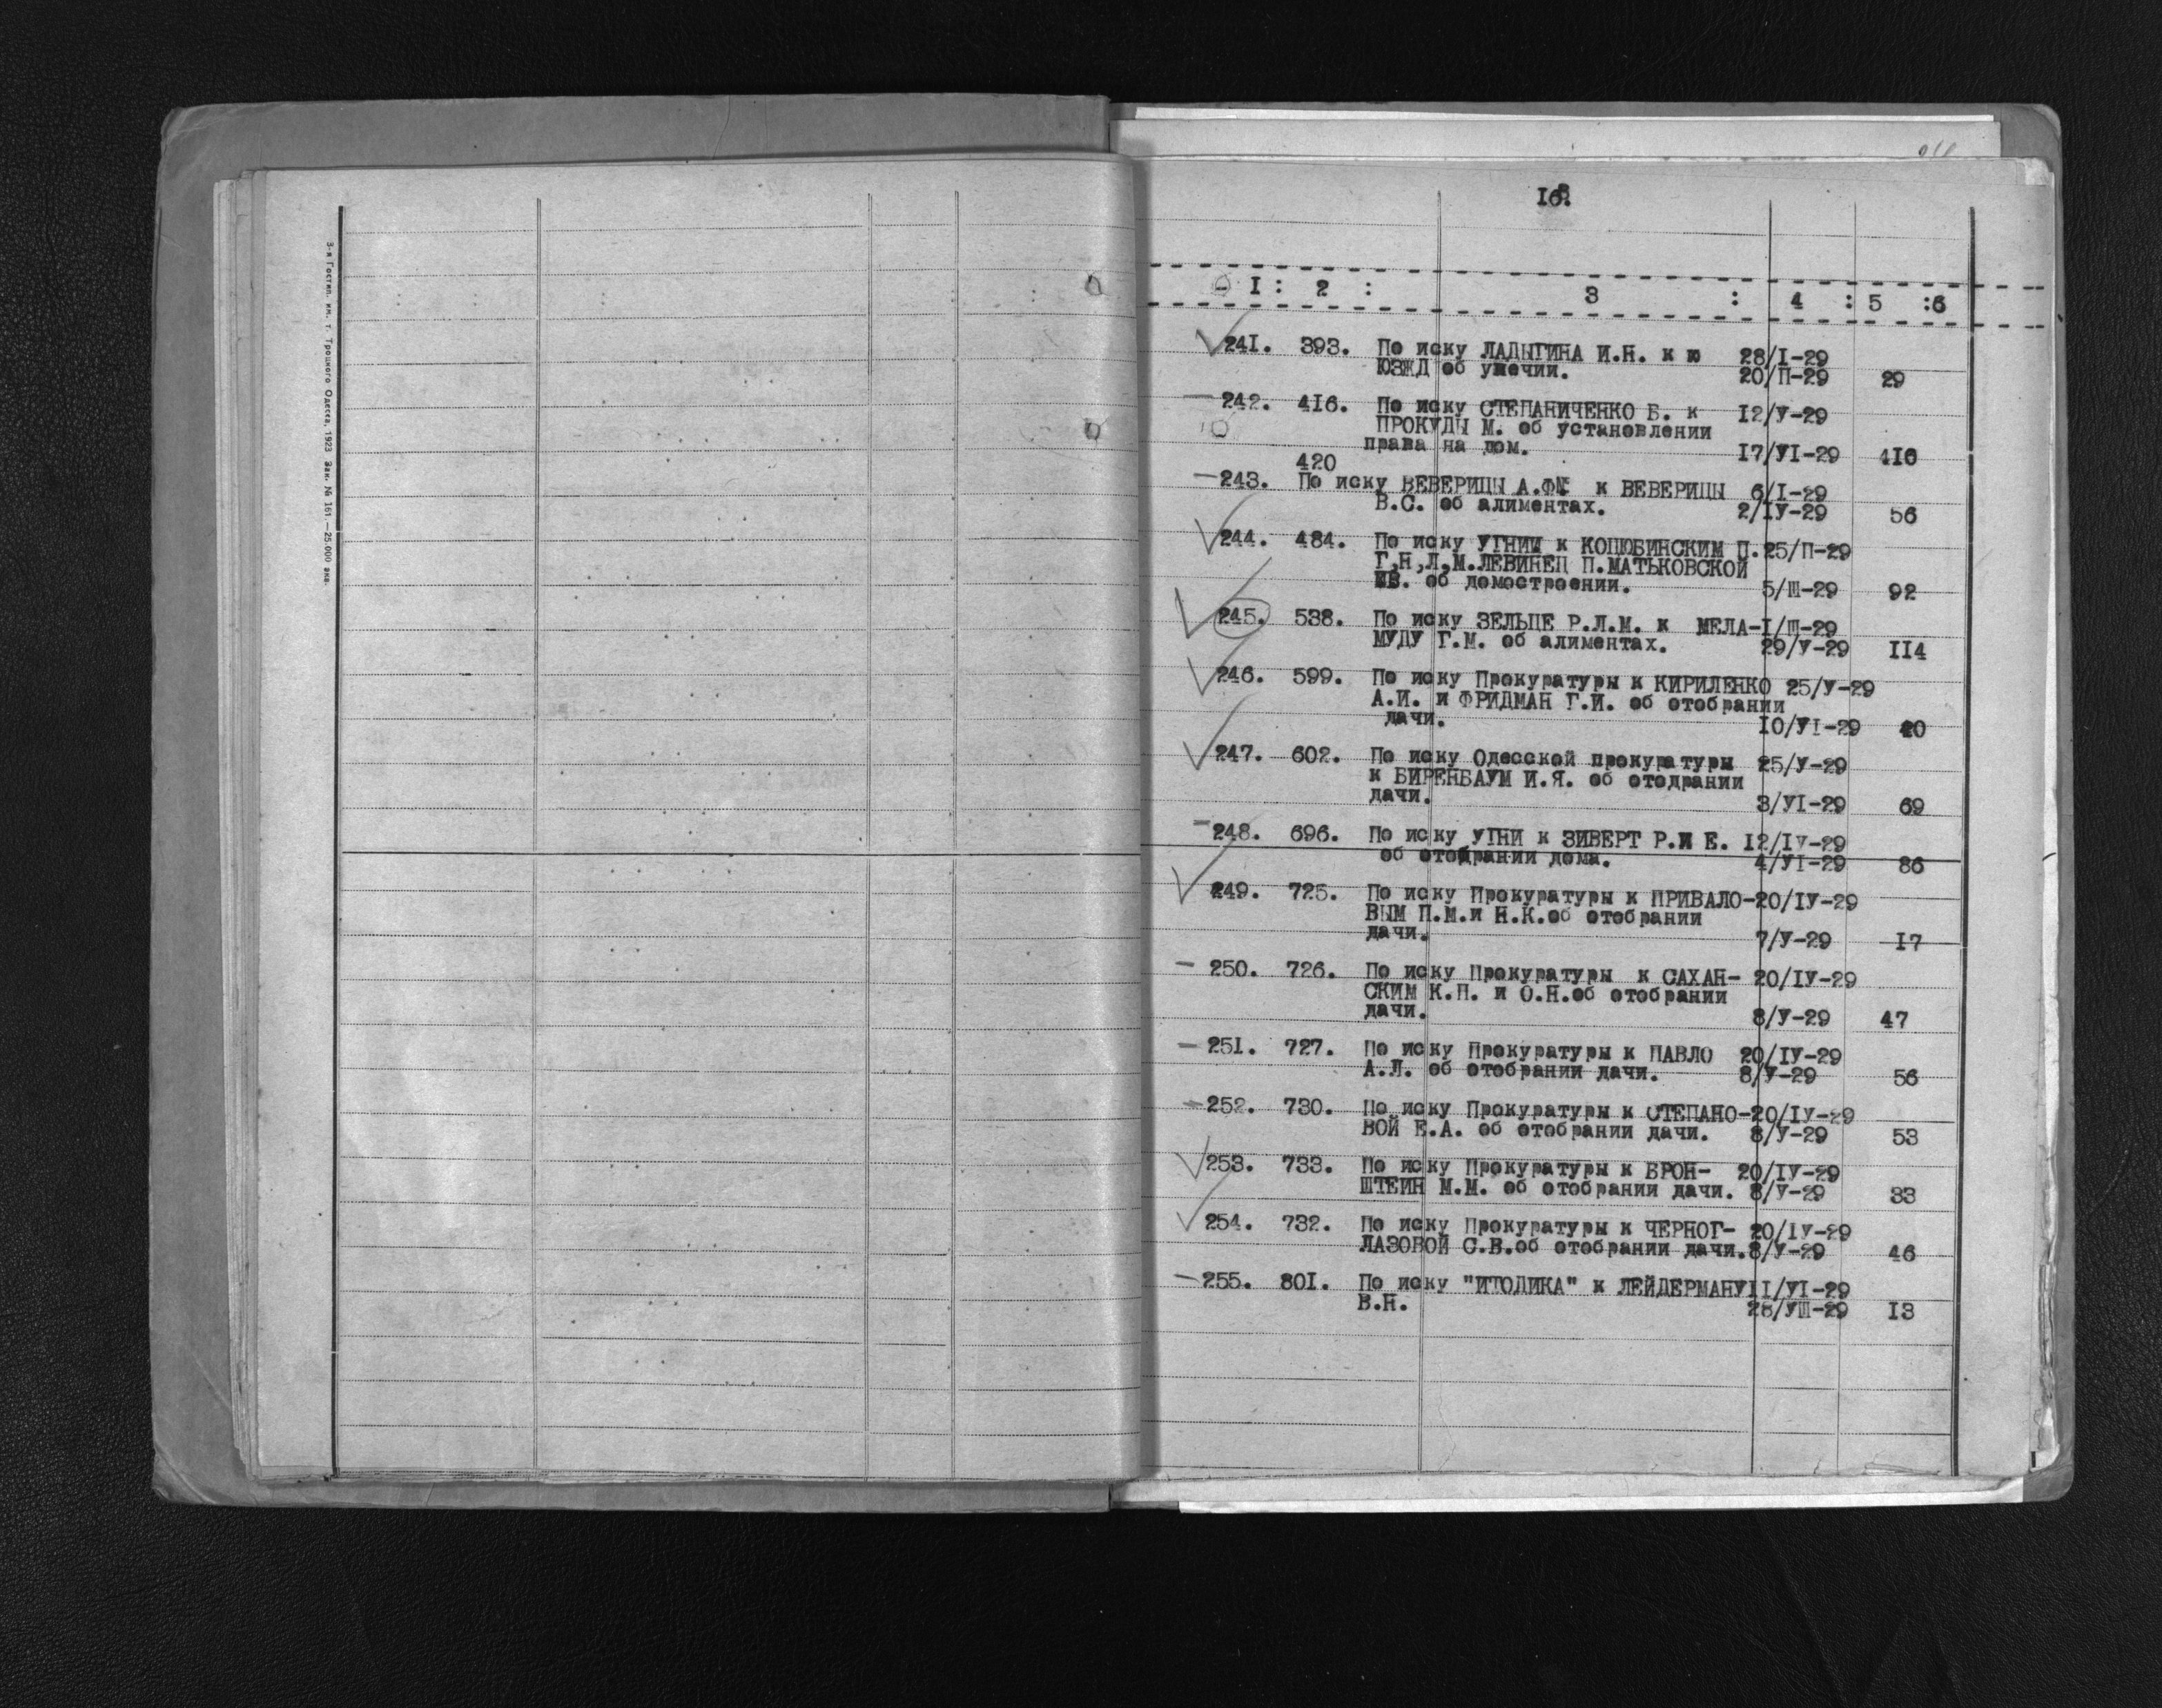 3-я Гостип. им. т. Троцкого Одесса, 1923 Зак. № 161.—25.000 экз.
I : 2 : 3 : 4 : 5 :6
241. 393. По иску ЛАДЫГИНА И.Н. к ю 28/I-29
ЮЗЖД об увечии. 20/П-29 29
242. 416. По иску СТЕПАНИЧЕНКО Б. к 12/У-29
ПРОКУДЫ М. об установлении
права на дом. 17/УI-29 416
420
243. По иску ВЕВЕРИЦЫ А.Ф. к ВЕВЕРИЦЫ 6/I-29
В.С. об алиментах. 2/IУ-29 56
244. 484. По иску УГНИИ к КОЦЮБИНСКИМ П. 25/П-29
Г,Н,Л,М.ЛЕВИНЕЦ П.МАТЬКОВСКОЙ
ИВ. об домостроении. 5/Ш-29 92
245. 538. По иску ЗЕЛЬЦЕ Р.Л.М. к МЕЛА- I/Ш-29
МУДУ Г.М. об алиментах. 29/У-29 II4
246. 599. По иску Прокуратуры к КИРИЛЕНКО 25/У-29
А.И. и ФРИДМАН Г.И. об отобрании
дачи. IO/УI-29 20
247. 602. По иску Одесской прокуратуры 25/У-29
к БИРЕНБАУМ И.Я. об отодрании
дачи. 3/УI-29 69
248. 696. По иску УГНИ к ЗИВЕРТ Р.И Е. I2/IУ-29
об отобрании дома. 4/УI-29 86
249. 725. По иску Прокуратуры к ПРИВАЛО- 20/IУ-29
ВЫМ П.М.и Н.К.об отобрании
дачи. 7/У-29 I7
250. 726. По иску Прокуратуры к САХАН- 20/IУ-29
СКИМ К.П. и О.Н.об отобрании
дачи. 8/У-29 47
251. 727. По иску Прокуратуры к ПАВЛО 20/IУ-29
А.Л. об отобрании дачи. 8/У-29 56
252. 730. По иску Прокуратуры к СТЕПАНО- 20/IУ-29
ВОЙ Е.А. об отобрании дачи. 8/У-29 53
253. 733. По иску Прокуратуры к БРОН- 20/IУ-29
ШТЕИН М.М. об отобрании дачи. 8/У-29 33
254. 732. По иску Прокуратуры к ЧЕРНОГ- 20/IУ-29
ЛАЗОВОЙ С.В.об отобрании дачи. 8/У-29 46
255. 801. По иску "ИТОДИКА" к ЛЕЙДЕРМАНУ II/УI-29
В.Н. 28/УШ-29 I3